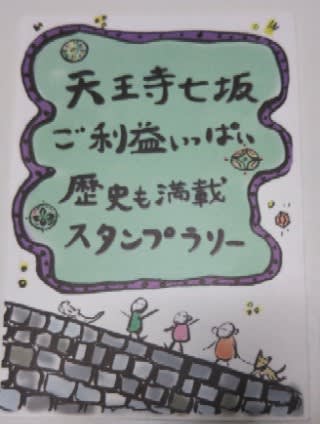 天王寺七坂
ご利益いっぱい
歴史も満載
スタンプラリー